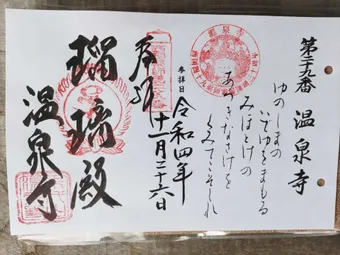 第二十九番 温泉寺
ゆのしまの
いでゆをまもる
みほとけの
あつきなさけを
くみてこそしれ
温泉寺
参拝日 令和四年
十一月二十六日
奉拝
瑠璃殿
温泉寺